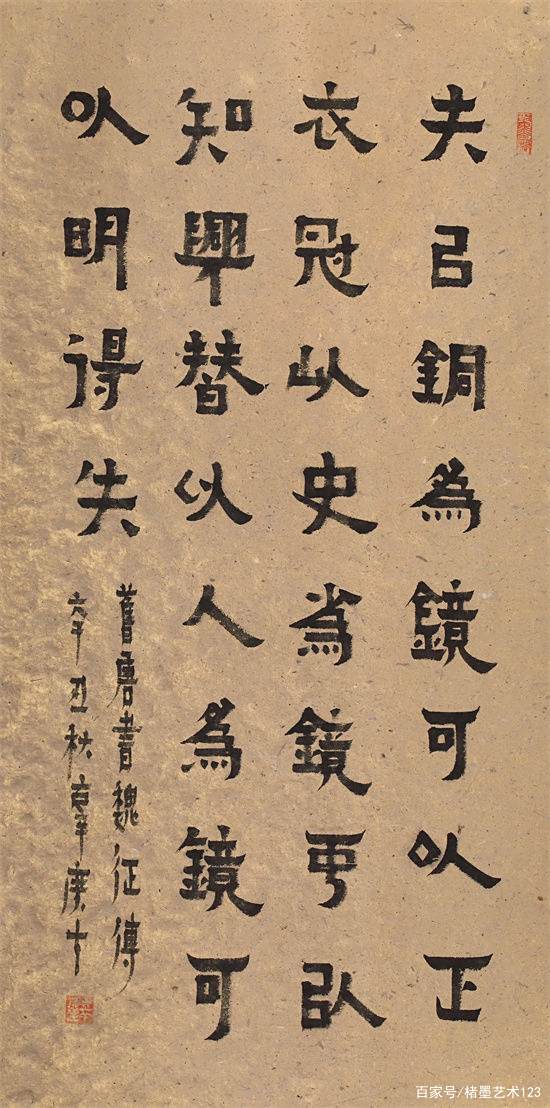 夫以銅為鏡可以正
衣冠以史為鏡可以
知興替以人為鏡可
以明得失
舊唐書魏征傳
辛丑秋
百家号/楮墨艺术123